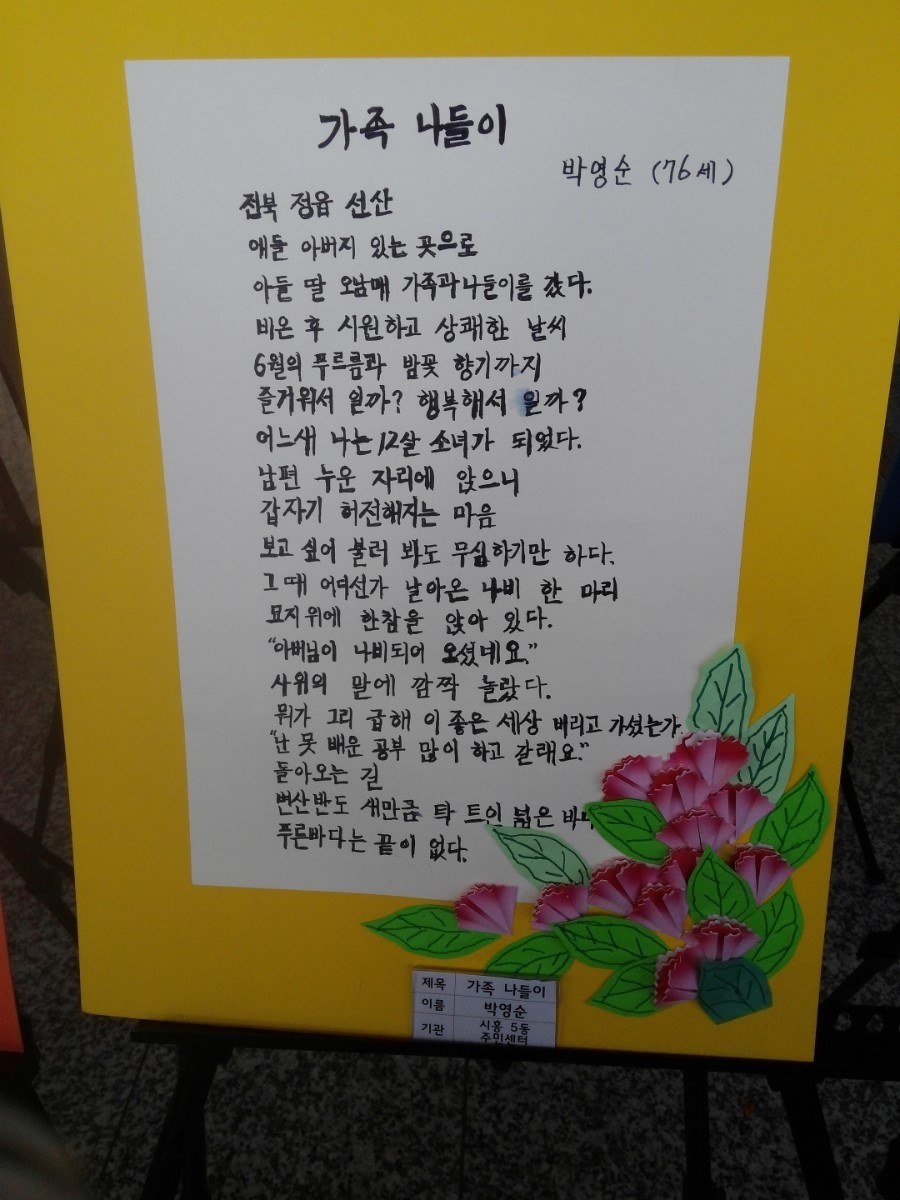 가족 나들이
박영순 (76세)
전북 정읍 선산
애들 아버지 있는 곳으로
아들 딸 오남매 가족과 나들이를 갔다.
비온 후 시원하고 상쾌한 날씨
6월의 푸르름과 밤꽃 향기까지
즐거워서 일까? 행복해서 일까?
어느새 나는 12살 소녀가 되었다.
남편 누운 자리에 앉으니
갑자기 허전해지는 마음
보고 싶어 불러 봐도 무심하기만 하다.
그때 어디선가 날아온 나비 한 마리
묘지위에 한참을 앉아 있다.
“아버님이 나비되어 오셨네요.”
사위의 말에 깜짝 놀랐다.
뭐가 그리 급해 이 좋은 세상 버리고 가셨는가.
“난 못 배운 공부 많이 하고 갈래요.”
돌아오는 길
변산반도 새만금 탁 트인 넓은
푸른바다는 끝이 없다.
제목 가족 나들이
이름 박영순
기관 시흥 5동
주민센터